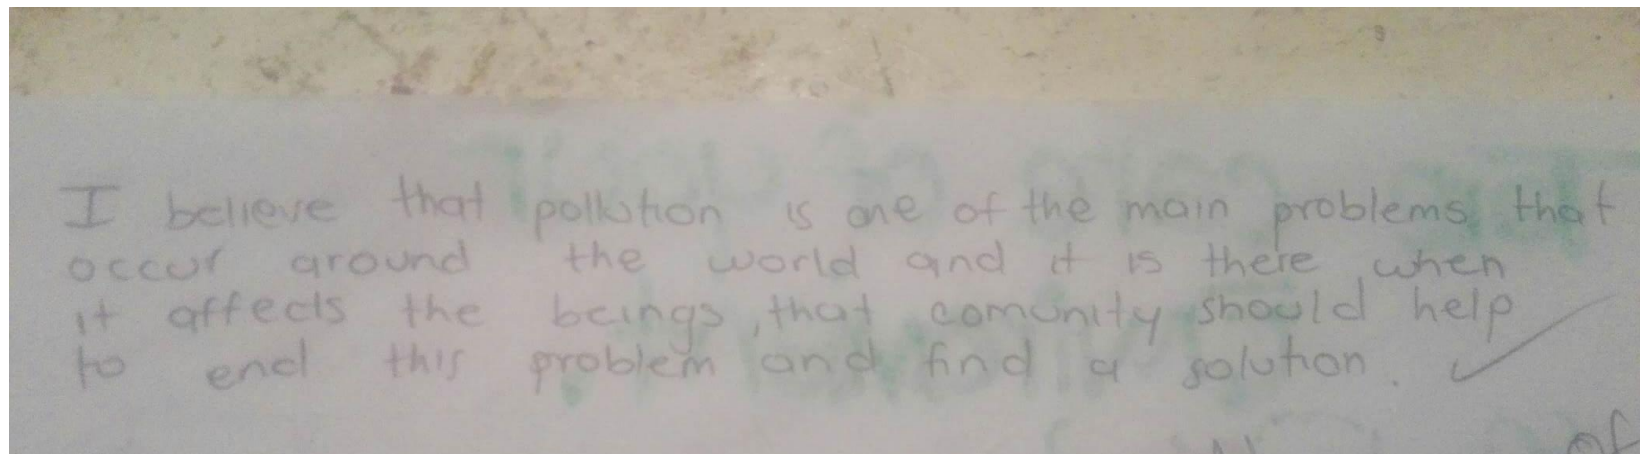 I believe that pollution is one of the main problems that
occur around the world and it is there when
it affects the beings, that comunity should help
to end this problem and find a solution. ✓
of